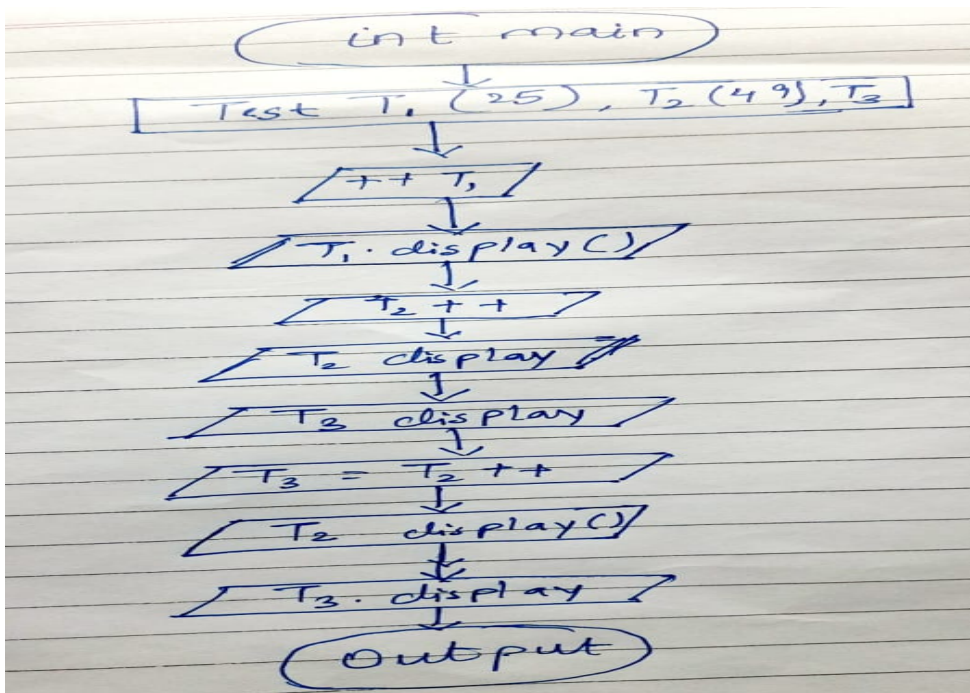 int main
Test T1 (25), T2 (49), T3
++ T1
T1. display()
T2 ++
T2 display
T3 display
T3 = T2 ++
T2 display()
T3. display
Output